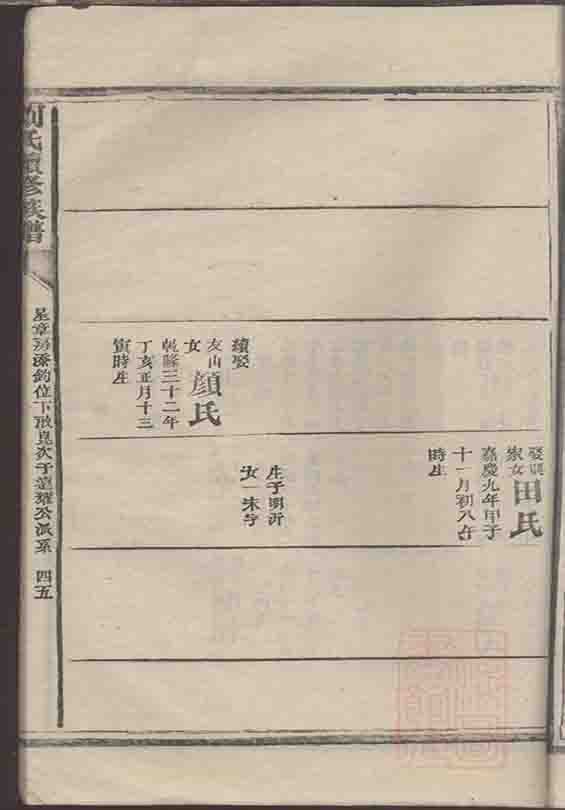 氏續修族譜
星章房添釣位下啟崑次子遠耀公派系 四五
續娶
友山
女
顏氏
乾隆三十二年
丁亥正月十三
寅時生
娶
家女
田氏
嘉慶九年甲子
十一月初八
時生
生子明沂
女一未字